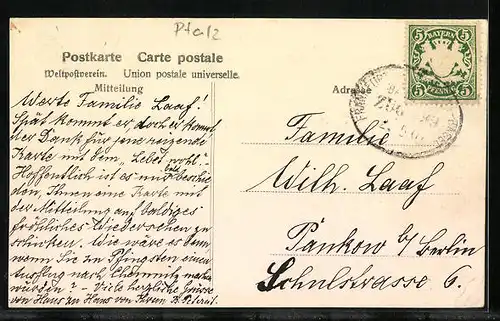 Pfalz
Postkarte Carte postale
Weltpostverein. Union postale universelle.
Mitteilung
Adresse
BAYERN
5 PFENNIG 5
Werte Familie Laaf!
Spät kommt er, doch er kommt
der Dank für jene reizende
Karte mit dem „Lebet wohl".
Hoffentlich ist es mir bald beschie-
den, Ihnen eine Karte mit
der Mitteilung auf baldiges
fröhliches Wiedersehen zu
schicken. Wie wäre es denn
wenn Sie zu Pfingsten einen
Ausflug nach Chemnitz machen
würden? – Viele herzliche Grüsse
von Haus zu Haus von Ihrem
Familie
Wilh. Laaf
Pankow b/ Berlin
Schulstrasse 6.